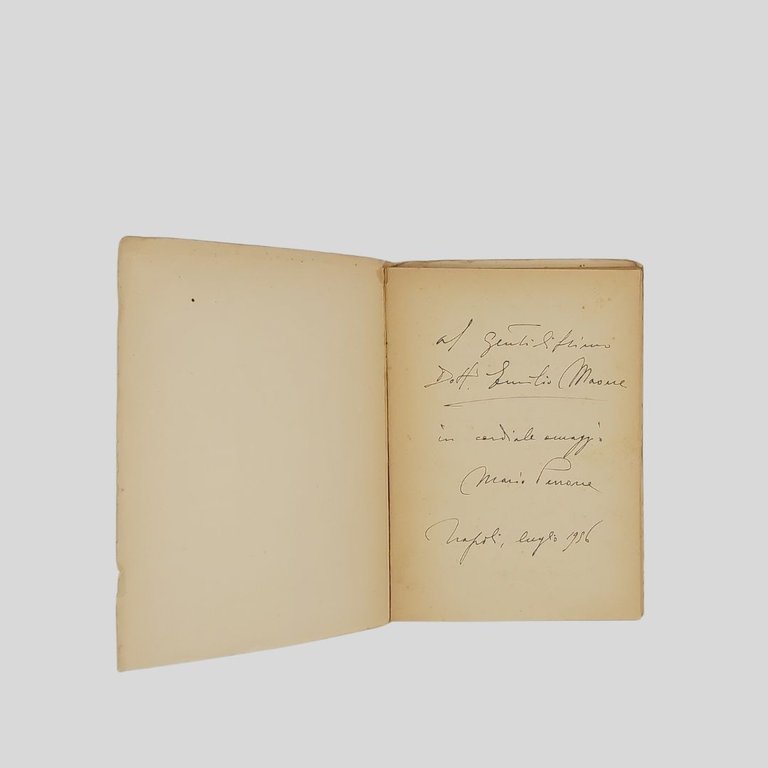 al gentilissimo
Dott. Emilio Maone
in cordiale omaggio
Mario Perrone
Napoli, luglio 1956